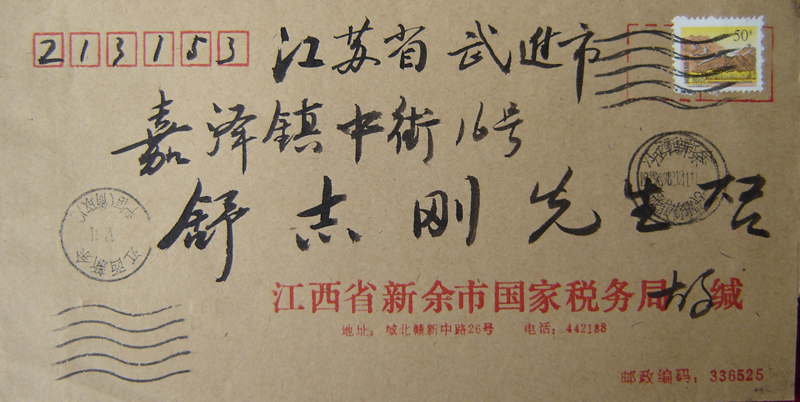 213153 江苏省武进市
50分
嘉泽镇中街16号
舒志刚先生启
江西新余
江西新余
江西省新余市国家税务局 缄
地址：城北赣新中路26号 电话：442188
邮政编码：336525